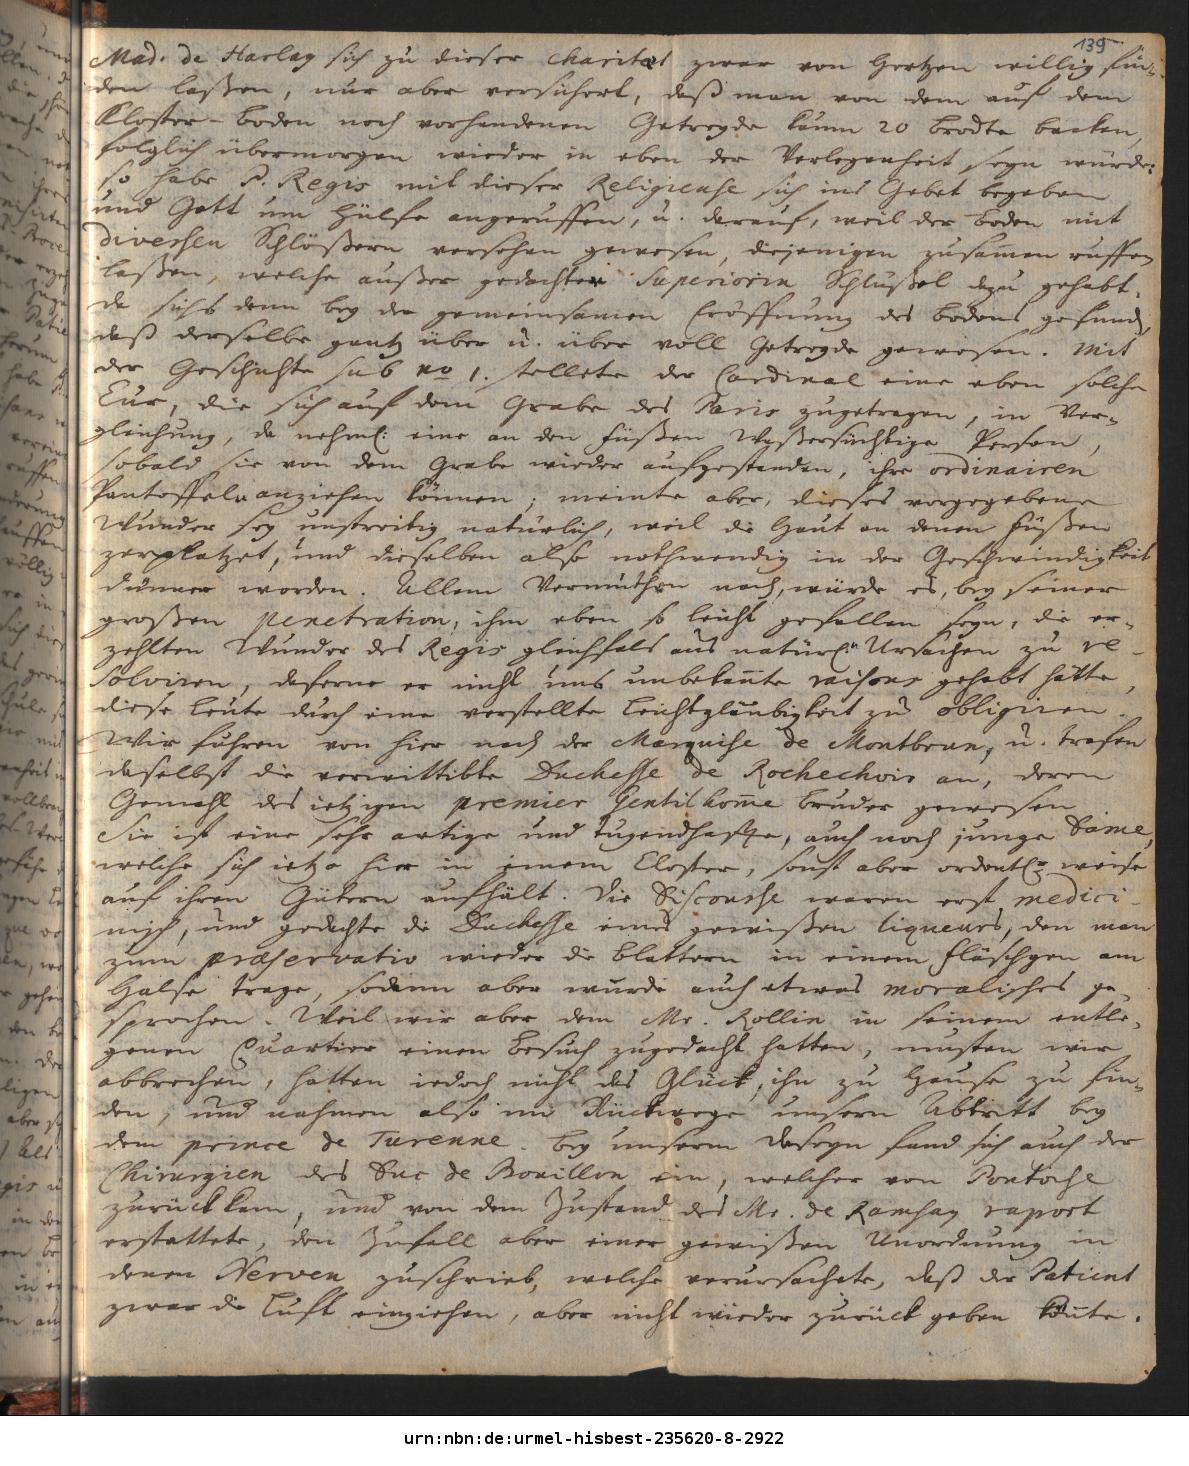 139
Mad. de Harlay sich zu dieser charität zwar von Hertzen willig fin-
den laßen, nur aber versichert, daß man von dem auf dem
Kloster-boden noch vorhandenen Getreyde kaum 20 brodte backen,
folglich übermorgen wieder in eben der Verlegenheit seyn würde:
so habe P. Regis mit dieser Religieuse sich ins Gebet begeben
und Gott um Hülfe angeruffen, u. darauf, weil der boden mit
diversen Schlößern versehen gewesen, diejenigen zusamen ruffen
laßen, welche außer gedachter Superiorin Schlüßel dazu gehabt,
da sichs denn bey der gemeinsamen Eröffnung des bodens gefunden,
daß derselbe gantz über u. über voll Getreyde gewesen. Mit
der Geschichte sub no 1. stellete der Cardinal eine eben solche
Cur, die sich auf dem Grabe des Paris zugetragen, in Ver-
gleichung, da nehml: eine an den Füßen Waßersüchtige Person,
sobald sie von dem Grabe wieder aufgestanden, ihre ordinairen
Pantoffeln anziehen können; meinte aber, dieses vorgegebene
Wunder sey unstreitig natürlich, weil die Haut an denen Füßen
zerplatzet, und dieselben also nothwendig in der Geschwindigkeit
dünner worden. Allem Vermuthen nach, würde es, bey seiner
großen penetration, ihm eben so leicht gefallen seyn, die er-
zehlten Wunder des Regis gleichfals aus natürl. Ursachen zu re-
solviren, daferne er nicht uns unbekante raisons gehabt hätte,
diese Leute durch eine verstellte Leichtgläubigkeit zu obligiren.
Wir fuhren von hier nach der Marquise de Montbrun, u. trafen
daselbst die verwittibte Duchesse de Rochechoir an, deren
Gemahl des ietzigen premier Gentilhome bruder gewesen.
Sie ist eine sehr artige und tugendhaffte, auch noch junge Dame,
welche sich ietzo hier in einem Closter, sonst aber ordentl. weise
auf ihren Gütern aufhält. Die Discourse waren erst medici-
nisch, und gedachte die Duchesse eines gewißen liqueurs, den man
zum præservativ wieder die blattern in einem Fläschgen am
Halse trage, sodann aber wurde auch etwas moralisches ge-
sprochen. Weil wir aber dem Mr. Rollin in seinem entle-
genen Quartier einen Besuch zugedacht hatten, musten wir
abbrechen, hatten iedoch nicht das Glück, ihn zu Hause zu fin-
den, und nahmen also im Rückwege unsern Abtritt bey
dem prince de Turenne. bey unserm Daseyn fand sich auch der
Chirurgien des Duc de Bouillon ein, welcher von Pontoise
zurück kam, und von dem Zustand des Mr. de Ramsay raport
erstattete, den Zufall aber einer gewißen Unordnung in
denen Nerven zuschrieb, welche verursachete, daß der Patient
zwar die Luft einziehen, aber nicht wieder zurück geben konte.
urn:nbn:de:urmel-hisbest-235620-8-2922